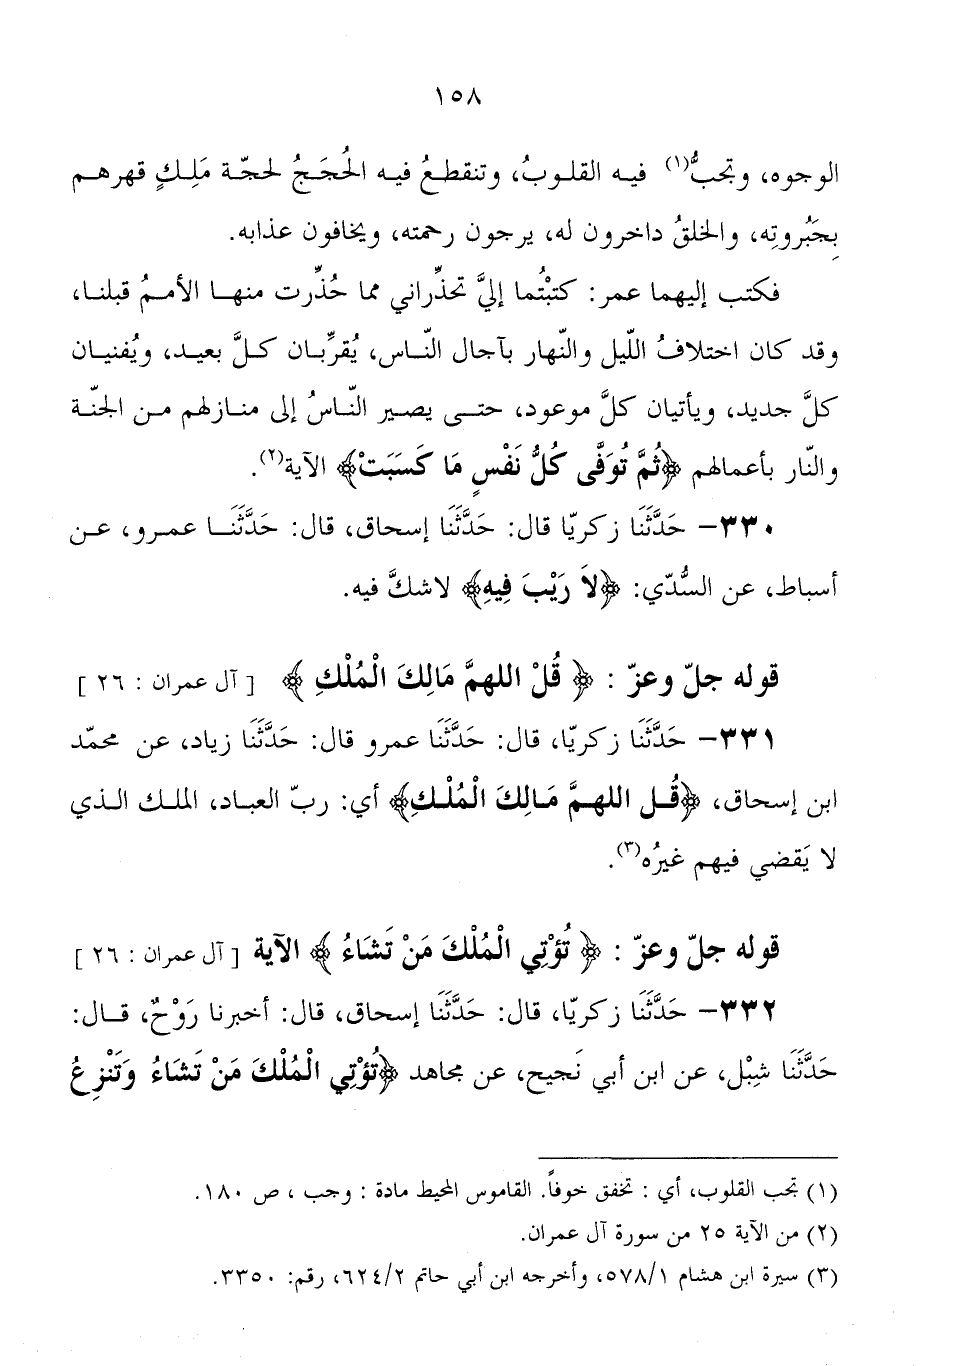 ١٥٨
الوجوه، وتجبُّ(١) فيه القلوبُ، وتنقطعُ فيه الحُجَجُ لحجّة مَلِكٍ قهرهم
بجَبُروتِه، والخلقُ داخرون له، يرجون رحمته، ويخافون عذابه.
فكتب إليهما عمر: كتبْتُما إليَّ تحذِّراني مما حُذِّرت منها الأممُ قبلنا،
وقد كان اختلافُ اللّيل والنّهار بآجال النّاس، يُقرِّبان كلَّ بعيد، ويُفنيان
كلَّ جديد، ويأتيان كلَّ موعود، حتى يصير النّاسُ إلى منازلهم من الجنّة
والنّار بأعمالهم ﴿ثُمَّ تُوَفَّى كُلُّ نَفْسٍ مَا كَسَبَتْ﴾ الآية(٢).
٣٣٠– حَدَّثَنَا زكريّا قال: حَدَّثَنَا إسحاق، قال: حَدَّثَنَا عمرو، عن
أسباط، عن السُّدّي: ﴿لاَ رَيْبَ فِيهِ﴾ لاشكَّ فيه.
قوله جلّ وعزّ : ﴿ قُلْ اللهمَّ مَالِكَ الْمُلْكِ ﴾ [ آل عمران : ٢٦ ]
٣٣١– حَدَّثَنَا زكريّا، قال: حَدَّثَنَا عمرو قال: حَدَّثَنَا زياد، عن محمّد
ابن إسحاق، ﴿قُل اللهمَّ مَالِكَ الْمُلْكِ﴾ أي: ربّ العباد، الملك الذي
لا يَقضي فيهم غيرُه(٣).
قوله جلّ وعزّ : ﴿ تُؤْتِي الْمُلْكَ مَنْ تَشَاءُ ﴾ الآية [ آل عمران : ٢٦ ]
٣٣٢– حَدَّثَنَا زكريّا، قال: حَدَّثَنَا إسحاق، قال: أخبرنا رَوْحٌ، قال:
حَدَّثَنَا شِبْل، عن ابن أبي نَجيح، عن مجاهد ﴿تُؤْتِي الْمُلْكَ مَنْ تَشَاءُ وَتَنْزِعُ
(١) تجب القلوب، أي : تخفق خوفاً. القاموس المحيط مادة : وجب ، ص ١٨٠.
(٢) من الآية ٢٥ من سورة آل عمران.
(٣) سيرة ابن هشام ٥٧٨/١، وأخرجه ابن أبي حاتم ٦٢٤/٢، رقم: ٣٣٥٠.